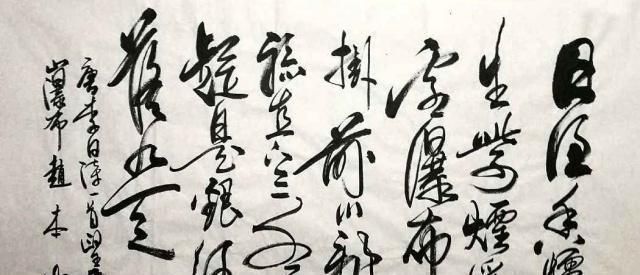 日照香爐
生紫煙遙
看瀑布
掛前川飛
流直下三千
疑是銀河
落九天
唐李白詩一首望廬
山瀑布 趙本